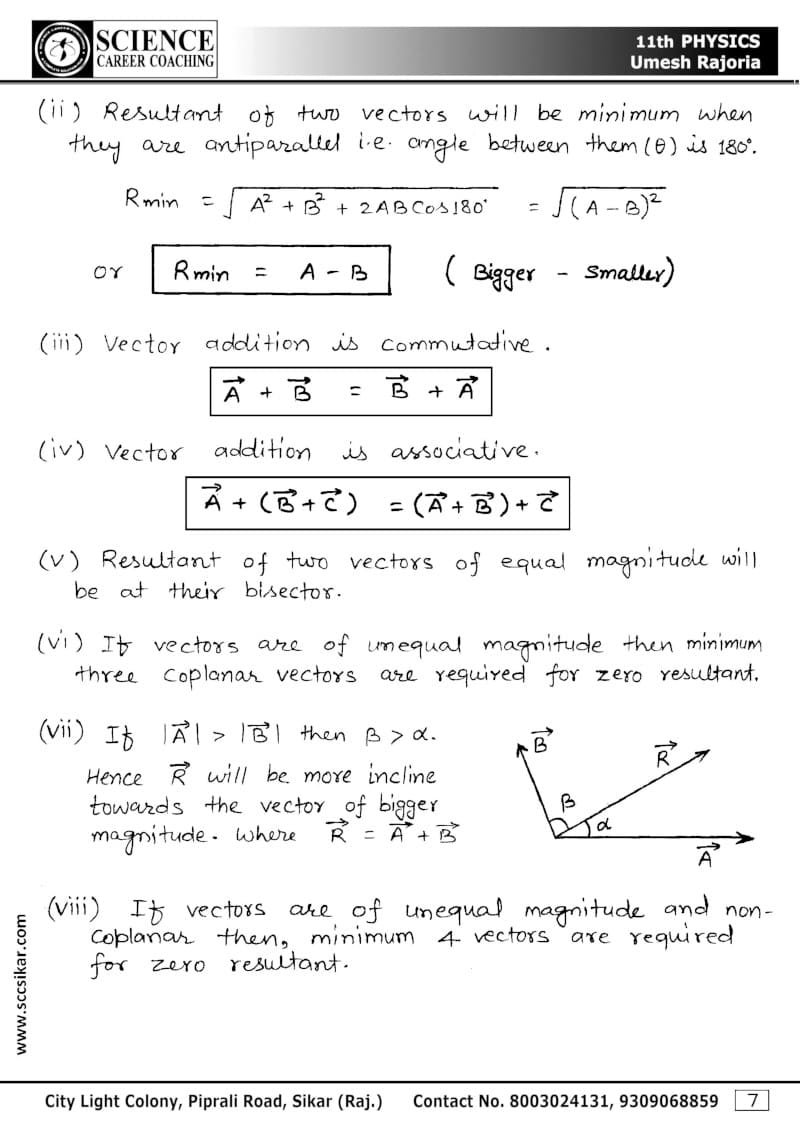 SCIENCE
CAREER COACHING
11th PHYSICS
Umesh Rajoria
(ii) Resultant of two vectors will be minimum when
they are antiparallel i.e. angle between them (θ) is 180°.
Rmin = √(A² + B² + 2ABCos180°) = √((A - B)²)
or Rmin = A - B ( Bigger - Smaller)
(iii) Vector addition is commutative.
A⃗ + B⃗ = B⃗ + A⃗
(iv) Vector addition is associative.
A⃗ + (B⃗ + C⃗) = (A⃗ + B⃗) + C⃗
(v) Resultant of two vectors of equal magnitude will
be at their bisector.
(vi) If vectors are of unequal magnitude then minimum
three coplanar vectors are required for zero resultant.
(vii) If |A⃗| > |B⃗| then β > α.
Hence R⃗ will be more incline
towards the vector of bigger
magnitude. Where R⃗ = A⃗ + B⃗
B⃗
R⃗
β
α
A⃗
(viii) If vectors are of unequal magnitude and non-
coplanar then, minimum 4 vectors are required
for zero resultant.
www.sccsikar.com
City Light Colony, Piprali Road, Sikar (Raj.) Contact No. 8003024131, 9309068859 7